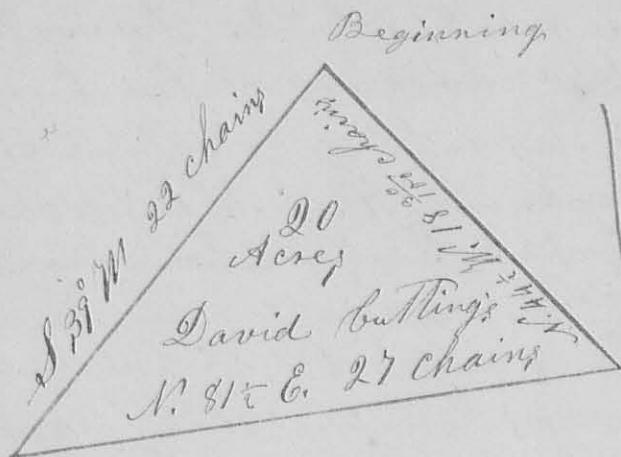 Beginning
S 39° W 22 chains
N. 44½ W. 18 30/100 chains
20
Acres
David Cutting's
N. 81½ E. 27 chains